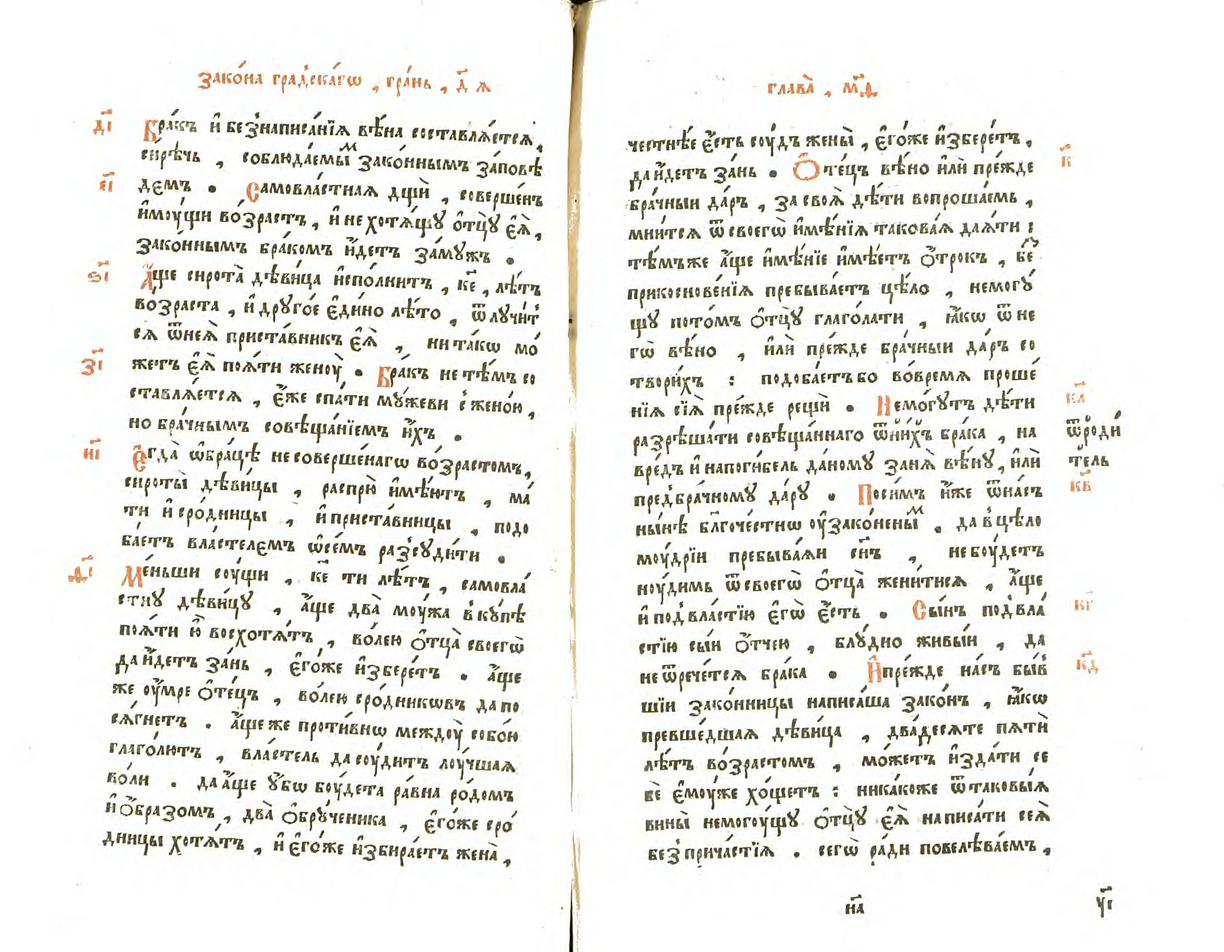 Зако́на гра́дскагѡ , гра́нь , д҃ ѧ
д҃і Бра́къ и҆ беꙁ̾написа́нїѧ вѣ́на составлѧ́етсѧ ,
си́рѣчь , соблюда́емыⷨ зако́ннымъ за́повѣ
є҃і демъ . Самовла́стнаѧ дщѝ , соверше́нъ
и҆моу́щи во́зрастъ , и҆ не хотѧ́щꙋ ѻ҆тцꙋ̀ є҆ѧ̀ ,
зако́ннымъ бра́комъ и҆́детъ за́мꙋжъ .
ѕ҃і А҆́ще сирота̀ дѣви́ца и҆спо́лнитъ , к҃є , лѣ́тъ
во́зраста , и҆ дрꙋго́е є҆ди́но лѣ́то , ѿлꙋчи́т
сѧ ѿнеѧ̀ приста́вникъ є҆ѧ̀ , ни та́кѡ мо́
з҃і жетъ є҆ѧ̀ поѧ́ти женоу̀ . Бра́къ не тѣ́мъ со
ставлѧ́етсѧ , є҆́же спа́ти мꙋ́жеви с̾ жено́ю ,
но бра́чнымъ совѣща́нїемъ и҆́хъ .
и҃і Є҆гда̀ ѡ҆бра́цѣ не соверше́нагѡ во́зрастомъ ,
сироты̀ дѣви́цы , распрю̀ и҆мѣ́ютъ , ма́
ти и҆ сро́дницы , и҆ приста́вницы , подо
ба́етъ власте́лемъ ѡ҆се́мъ разсꙋди́ти .
ѳ҃і Ме́ньши соу́щи , к҃є ти лѣ́тъ , самовла́
стнꙋ дѣви́цꙋ , а҆́ще два̀ моу́жа в̾кꙋ́пѣ
поѧ́ти ю҆̀ восхотѧ́тъ , во́лею ѻ҆тца̀ своегѡ̀
да и҆́детъ за́нь , є҆гѡ́же и҆збере́тъ . а҆́ще
же оу҆́мре ѻ҆те́цъ , во́лею сро́дникѡвъ да по
сѧ́гнетъ . а҆́ще же проти́внѡ междоу̀ собо́ю
глаго́лютъ , власте́ль да соу́дитъ лоу́чшаѧ
во́ли . да а҆́ще ᲂу҆́бѡ боу́дета ра́вна ро́домъ
и҆ ѻ҆́бразомъ , два̀ ѻ҆брꙋ́ченика , є҆го́же сро́
дницы хотѧ́тъ , и҆ є҆го́же и҆збира́етъ жена̀ ,
глава̀ , м҃ѳ
честнѣ́е є҆́сть соу́дъ жены̀ , є҆го́же и҆збере́тъ ,
к҃ да и҆́детъ за́нь . Ѻ҆те́цъ вѣ́но и҆лѝ пре́жде
бра́чныи да́ръ , за своѧ̀ дѣ́ти вопроша́емь ,
мни́тсѧ ѿ своегѡ̀ и҆мѣ́нїѧ такова́ѧ даѧ́ти :
тѣ́мъже а҆́ще и҆мѣ́нїе и҆мѣ́етъ ѻ҆́трокъ , беⷥ
прикоснове́нїѧ пребыва́етъ цѣ́ло , немогꙋ́
щꙋ пото́мъ ѻ҆тцꙋ̀ глаго́лати , ꙗ҆́кѡ ѿ не
гѡ̀ вѣ́но , и҆лѝ пре́жде бра́чныи да́ръ со
твори́хъ : подоба́етъ бо во́время проше́
нїѧ сїѧ̀ пре́жде рещѝ .
к҃а Немо́гꙋтъ дѣ́ти
разрѣша́ти совѣща́ннаго ѿ ни́хъ бра́ка , на
ѿ роди́
тель
вре́дъ и҆ на поги́бель да́номꙋ за нѧ̀ вѣ́нꙋ , и҆лѝ
к҃в пред̾бра́чномꙋ да́рꙋ . По си́мъ и҆́же ѿ на́съ
ны́нѣ блг҃оче́стнѡ ᲂу҆зако́неныⷨ , да в̾ цѣ́ло
моу́дрїи пребыва́ѧи сн҃ъ , не боу́детъ
ноу́димь ѿ своегѡ̀ ѻ҆тца̀ жени́тисѧ , а҆́ще
к҃г и҆ под̾ вла́стїю є҆гѡ̀ є҆́сть . Сы́нъ под̾ вла́
стїю сы́и ѻ҆́тчею , блꙋ́дно живы́и , да
к҃д не ѿрече́тсѧ бра́ка . И҆ пре́жде на́съ бы́в
шїи зако́нницы написа́ша зако́нъ , ꙗ҆́кѡ
превше́дшаѧ дѣви́ца , два́десѧте пѧтѝ
лѣ́тъ во́зрастомъ , мо́жетъ и҆зда́ти се
бѐ є҆моу́же хо́щетъ : ника́коже ѿ таковы́ѧ
вины̀ немогоу́щꙋ ѻ҆тцꙋ̀ є҆ѧ̀ написа́ти сеѧ̀
без̾ прича́стїѧ . сегѡ̀ ра́ди повелѣва́емъ ,
н҃а
у҃і